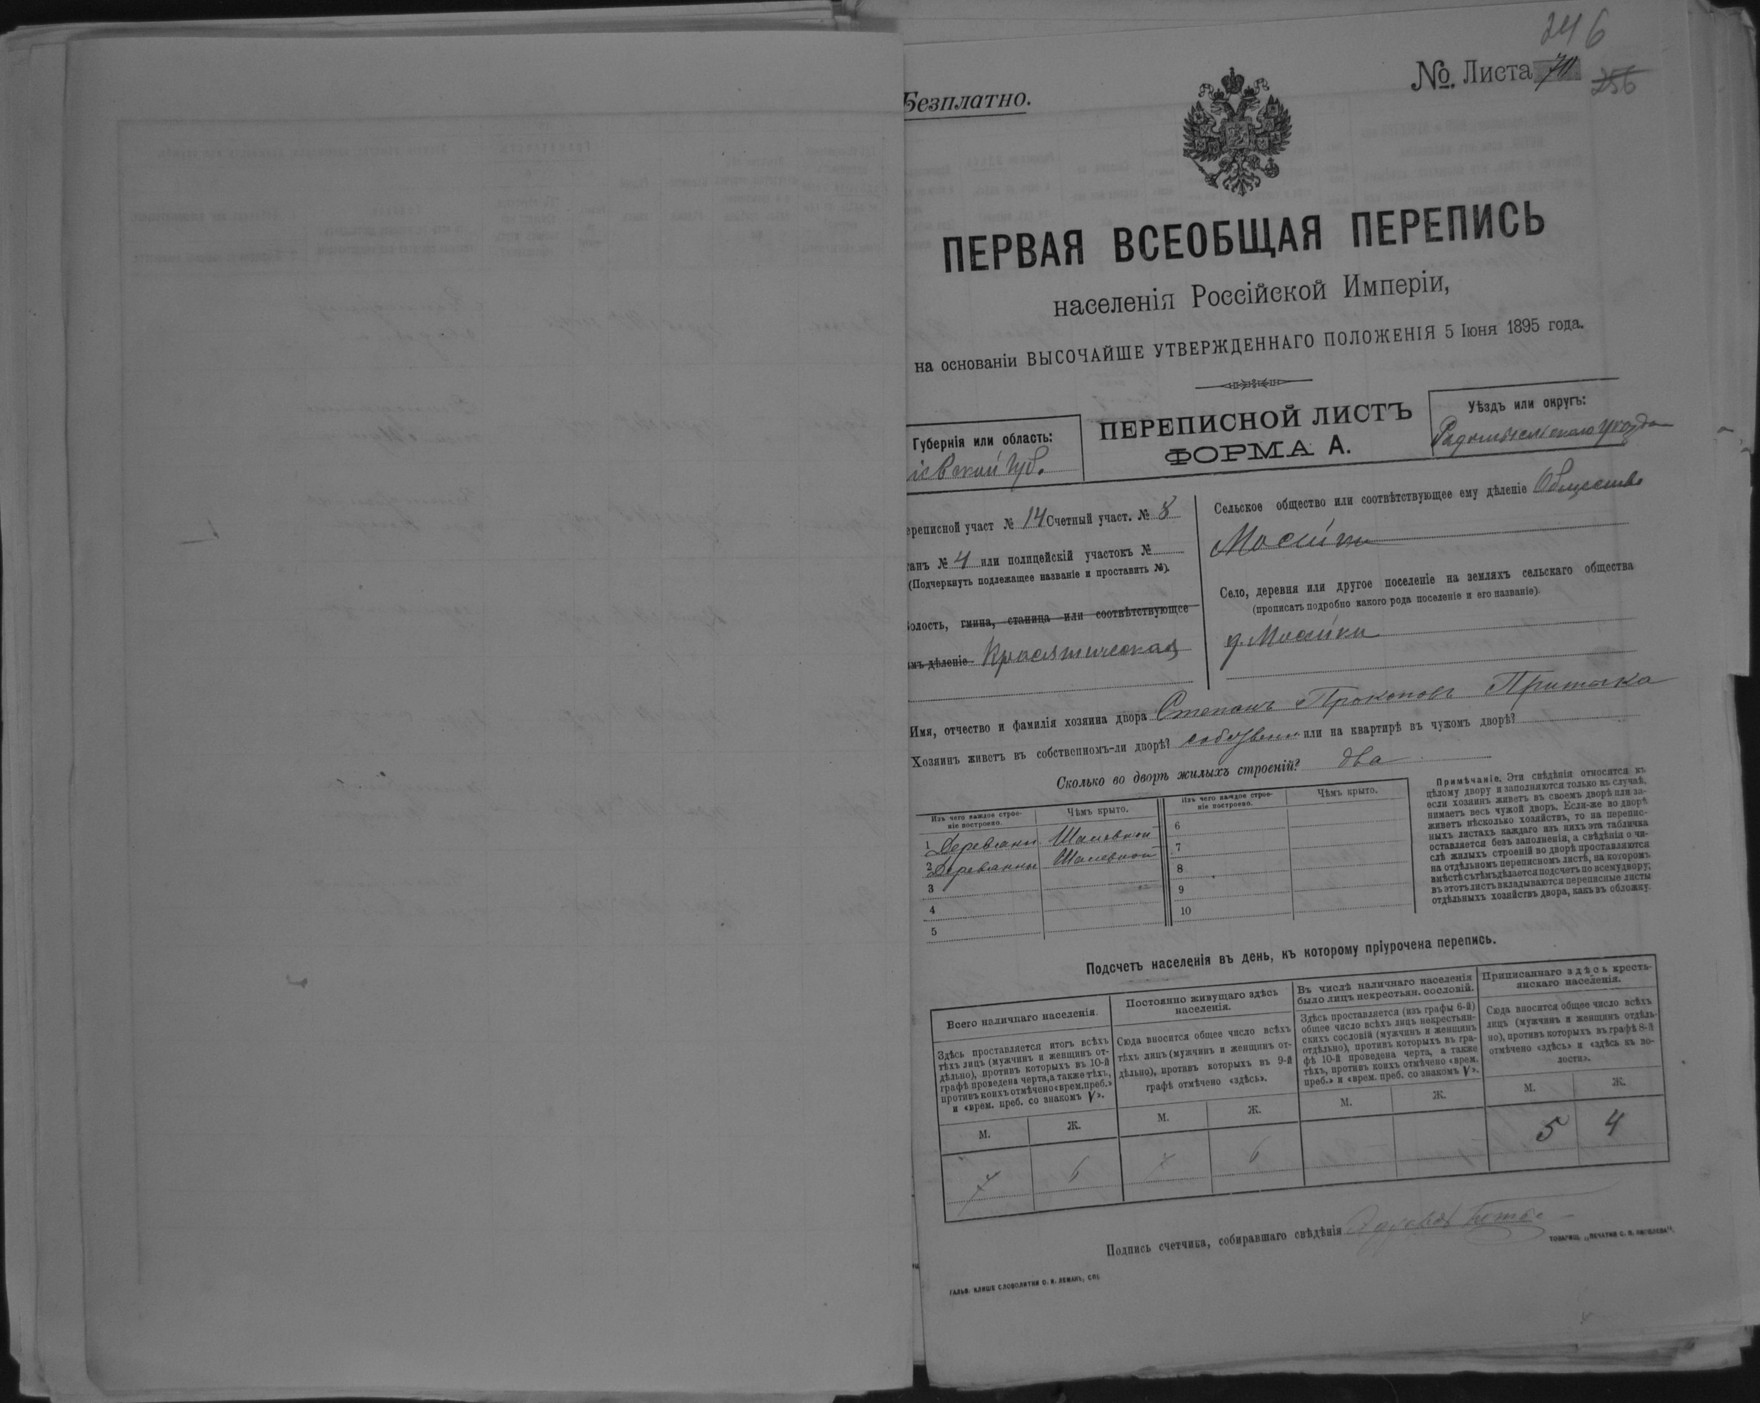 246
Безплатно.
№ Листа 70
256
ПЕРВАЯ ВСЕОБЩАЯ ПЕРЕПИСЬ
населенія Россійской Имперіи,
на основаніи ВЫСОЧАЙШЕ УТВЕРЖДЕННАГО ПОЛОЖЕНІЯ 5 Іюня 1895 года.
ПЕРЕПИСНОЙ ЛИСТЪ
ФОРМА А.
Губернія или область:
іевской губ.
Уѣздъ или округъ:
Радомысльскаго уѣзда
ереписной участ № 14 Счетный участ. № 8
танъ № 4 или полицейскій участокъ №
(Подчеркнуть подлежащее названіе и проставить №).
олость, гмина, станица или соотвѣтствующее
имъ дѣленіе Красятическая
Сельское общество или соотвѣтствующее ему дѣленіе Общество
Мосійки
Село, деревня или другое поселеніе на земляхъ сельскаго общества
(прописать подробно какого рода поселеніе и его названіе).
д. Мосійки
Имя, отчество и фамилія хозяина двора Степанъ Прокоповъ Притыка
Хозяинъ живетъ въ собственномъ-ли дворѣ? или на квартирѣ въ чужомъ дворѣ?
Сколько во дворѣ жилыхъ строеній? два
Изъ чего каждое строеніе построено. Чѣмъ крыто. Изъ чего каждое строеніе построено. Чѣмъ крыто.
1 Деревянн 6
2 Деревянн 7
3 8
4 9
5 10
Примѣчаніе. Эти свѣдѣнія относятся къ
цѣлому двору и заполняются только въ случаѣ,
если хозяинъ живетъ въ своемъ дворѣ или за-
нимаетъ весь чужой дворъ. Если-же во дворѣ
живетъ нѣсколько хозяйствъ, то на перепис-
ныхъ листахъ каждаго изъ нихъ эта табличка
оставляется безъ заполненія, а свѣдѣнія о чи-
слѣ жилыхъ строеній во дворѣ проставляются
на отдѣльномъ переписномъ листѣ, на которомъ
вмѣстѣ съ тѣмъ дѣлается подсчетъ по всему двору;
въ этотъ листъ вкладываются переписные листы
отдѣльныхъ хозяйствъ двора, какъ въ обложку.
Подсчетъ населенія въ день, къ которому пріурочена перепись.
Всего наличнаго населенія.
Здѣсь проставляется итогъ всѣхъ
тѣхъ лицъ (мужчинъ и женщинъ от-
дѣльно), противъ которыхъ въ 10-й
графѣ проведена черта, а также тѣхъ,
противъ коихъ отмѣчено «врем. преб.»
и «врем. преб. со знакомъ V».
Постоянно живущаго здѣсь
населенія.
Сюда вносится общее число всѣхъ
тѣхъ лицъ (мужчинъ и женщинъ от-
дѣльно), противъ которыхъ въ 9-й
графѣ отмѣчено «здѣсь».
Въ числѣ наличнаго населенія
было лицъ некрестьян. сословій.
Здѣсь проставляется (изъ графы 6-й)
общее число всѣхъ лицъ некрестьян-
скихъ сословій (мужчинъ и женщинъ
отдѣльно), противъ которыхъ въ гра-
фѣ 10-й проведена черта, а также
тѣхъ, противъ коихъ отмѣчено «врем.
преб.» и «врем. преб. со знакомъ V».
Приписаннаго здѣсь кресть-
янскаго населенія.
Сюда вносится общее число всѣхъ
лицъ (мужчинъ и женщинъ отдѣль-
но), противъ которыхъ въ графѣ 8-й
отмѣчено «здѣсь» и «здѣсь въ во-
лости».
М. Ж. М. Ж. М. Ж. М. Ж.
7 6 7 6 5 4
Подпись счетчика, собиравшаго свѣдѣнія
ГАЛЬВ. КЛИШЕ СЛОВОЛИТНИ О. И. ЛЕМАНЪ, СПБ.
ТОВАРИЩ. „ПЕЧАТНЯ С. П. ЯКОВЛЕВА“.